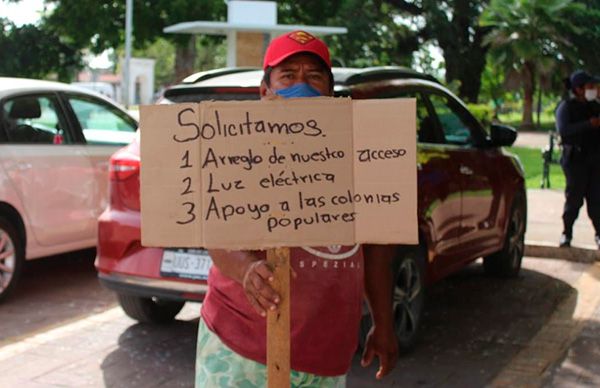 Solicitamos.
1 Arreglo de nuestro acceso
2 Luz eléctrica
3 Apoyo a las colonias
populares
SPEZIAL